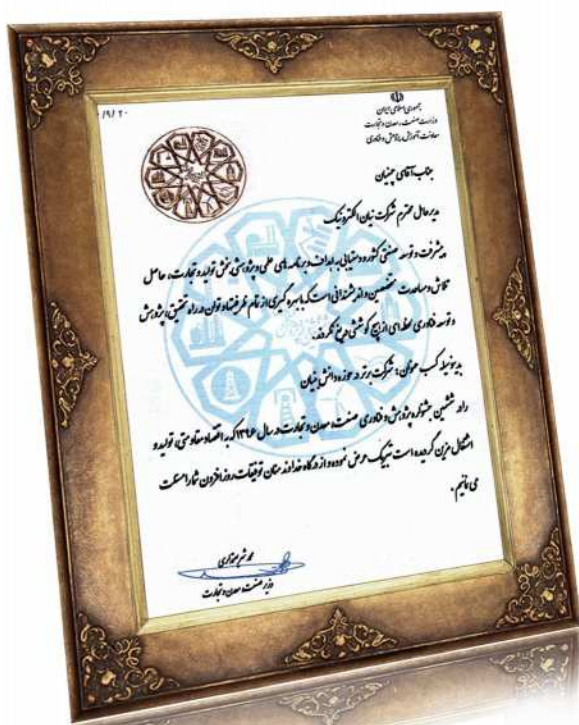 ۲۰/۹/
جمهوری اسلامی ایران
وزارت صنعت، معدن و تجارت
معاونت آموزش، پژوهش و فناوری
جناب آقای چینیان
مدیر عامل محترم شرکت نیان الکترونیک
پیشرفت و توسعه صنعتی کشور و دستیابی به اهداف و برنامه های علمی و پژوهشی بخش تولید و تجارت، حاصل
تلاش و مساعدت متخصصین و اندیشمندانی است که با بهره گیری از تمام ظرفیتها و توان در راه تحقیق، پژوهش
و توسعه فناوری لحظه ای از هیچ کوششی دریغ نکردند.
بدینوسیله کسب عنوان: شرکت برتر در حوزه دانش بنیان
را در ششمین جشنواره پژوهش و فناوری صنعت، معدن و تجارت در سال ۱۳۹۶ که به اقتصاد مقاومتی، تولید و
اشتغال مزین گردیده است تبریک عرض نموده و از درگاه خداوند منان توفیقات روز افزون شما را مسئلت
می نمایم.
محمد شریعتمداری
وزیر صنعت، معدن و تجارت